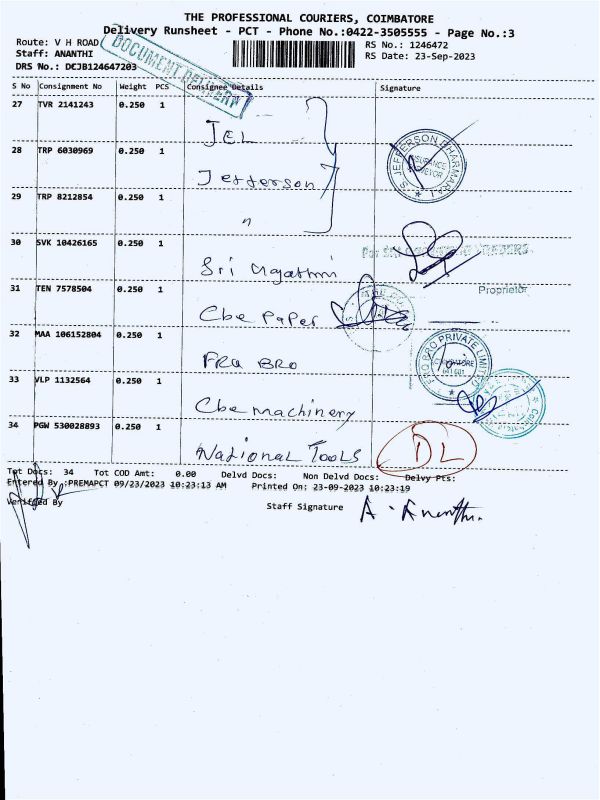 THE PROFESSIONAL COURIERS, COIMBATORE
Delivery Runsheet - PCT - Phone No.:0422-3505555 - Page No.:3
Route: V H ROAD
RS No.: 1246472
Staff: ANANTHI
RS Date: 23-Sep-2023
DRS No.: DEJB124647203
DOCUMENT DELIVERY
S No Consignment No Weight PCS Consignee Details Signature
27 TVR 2141243 0.250 1
JEL
28 TRP 6030969 0.250 1
S JEFFERSON DHARMARAJ
INSURANCE
Jefferson
29 TRP 8212854 0.250 1
"
30 SVK 10426165 0.250 1
For SRI TRADERS
Sri
31 TEN 7578504 0.250 1
Proprietor
Cbe Paper
32 MAA 106152804 0.250 1
FRO BRO PRIVATE LIMITED
COIMBATORE
641001
FRO BRO
33 VLP 1132564 0.250 1
Cbe machinery
34 PGW 530028893 0.250 1
National Tools
DL
Tot Docs: 34 Tot COD Amt: 0.00 Delvd Docs: Non Delvd Docs: Delvy Pts:
Entered By :PREMAPCT 09/23/2023 10:23:13 AM Printed On: 23-09-2023 10:23:19
Verified By
Staff Signature A. Ananthi.